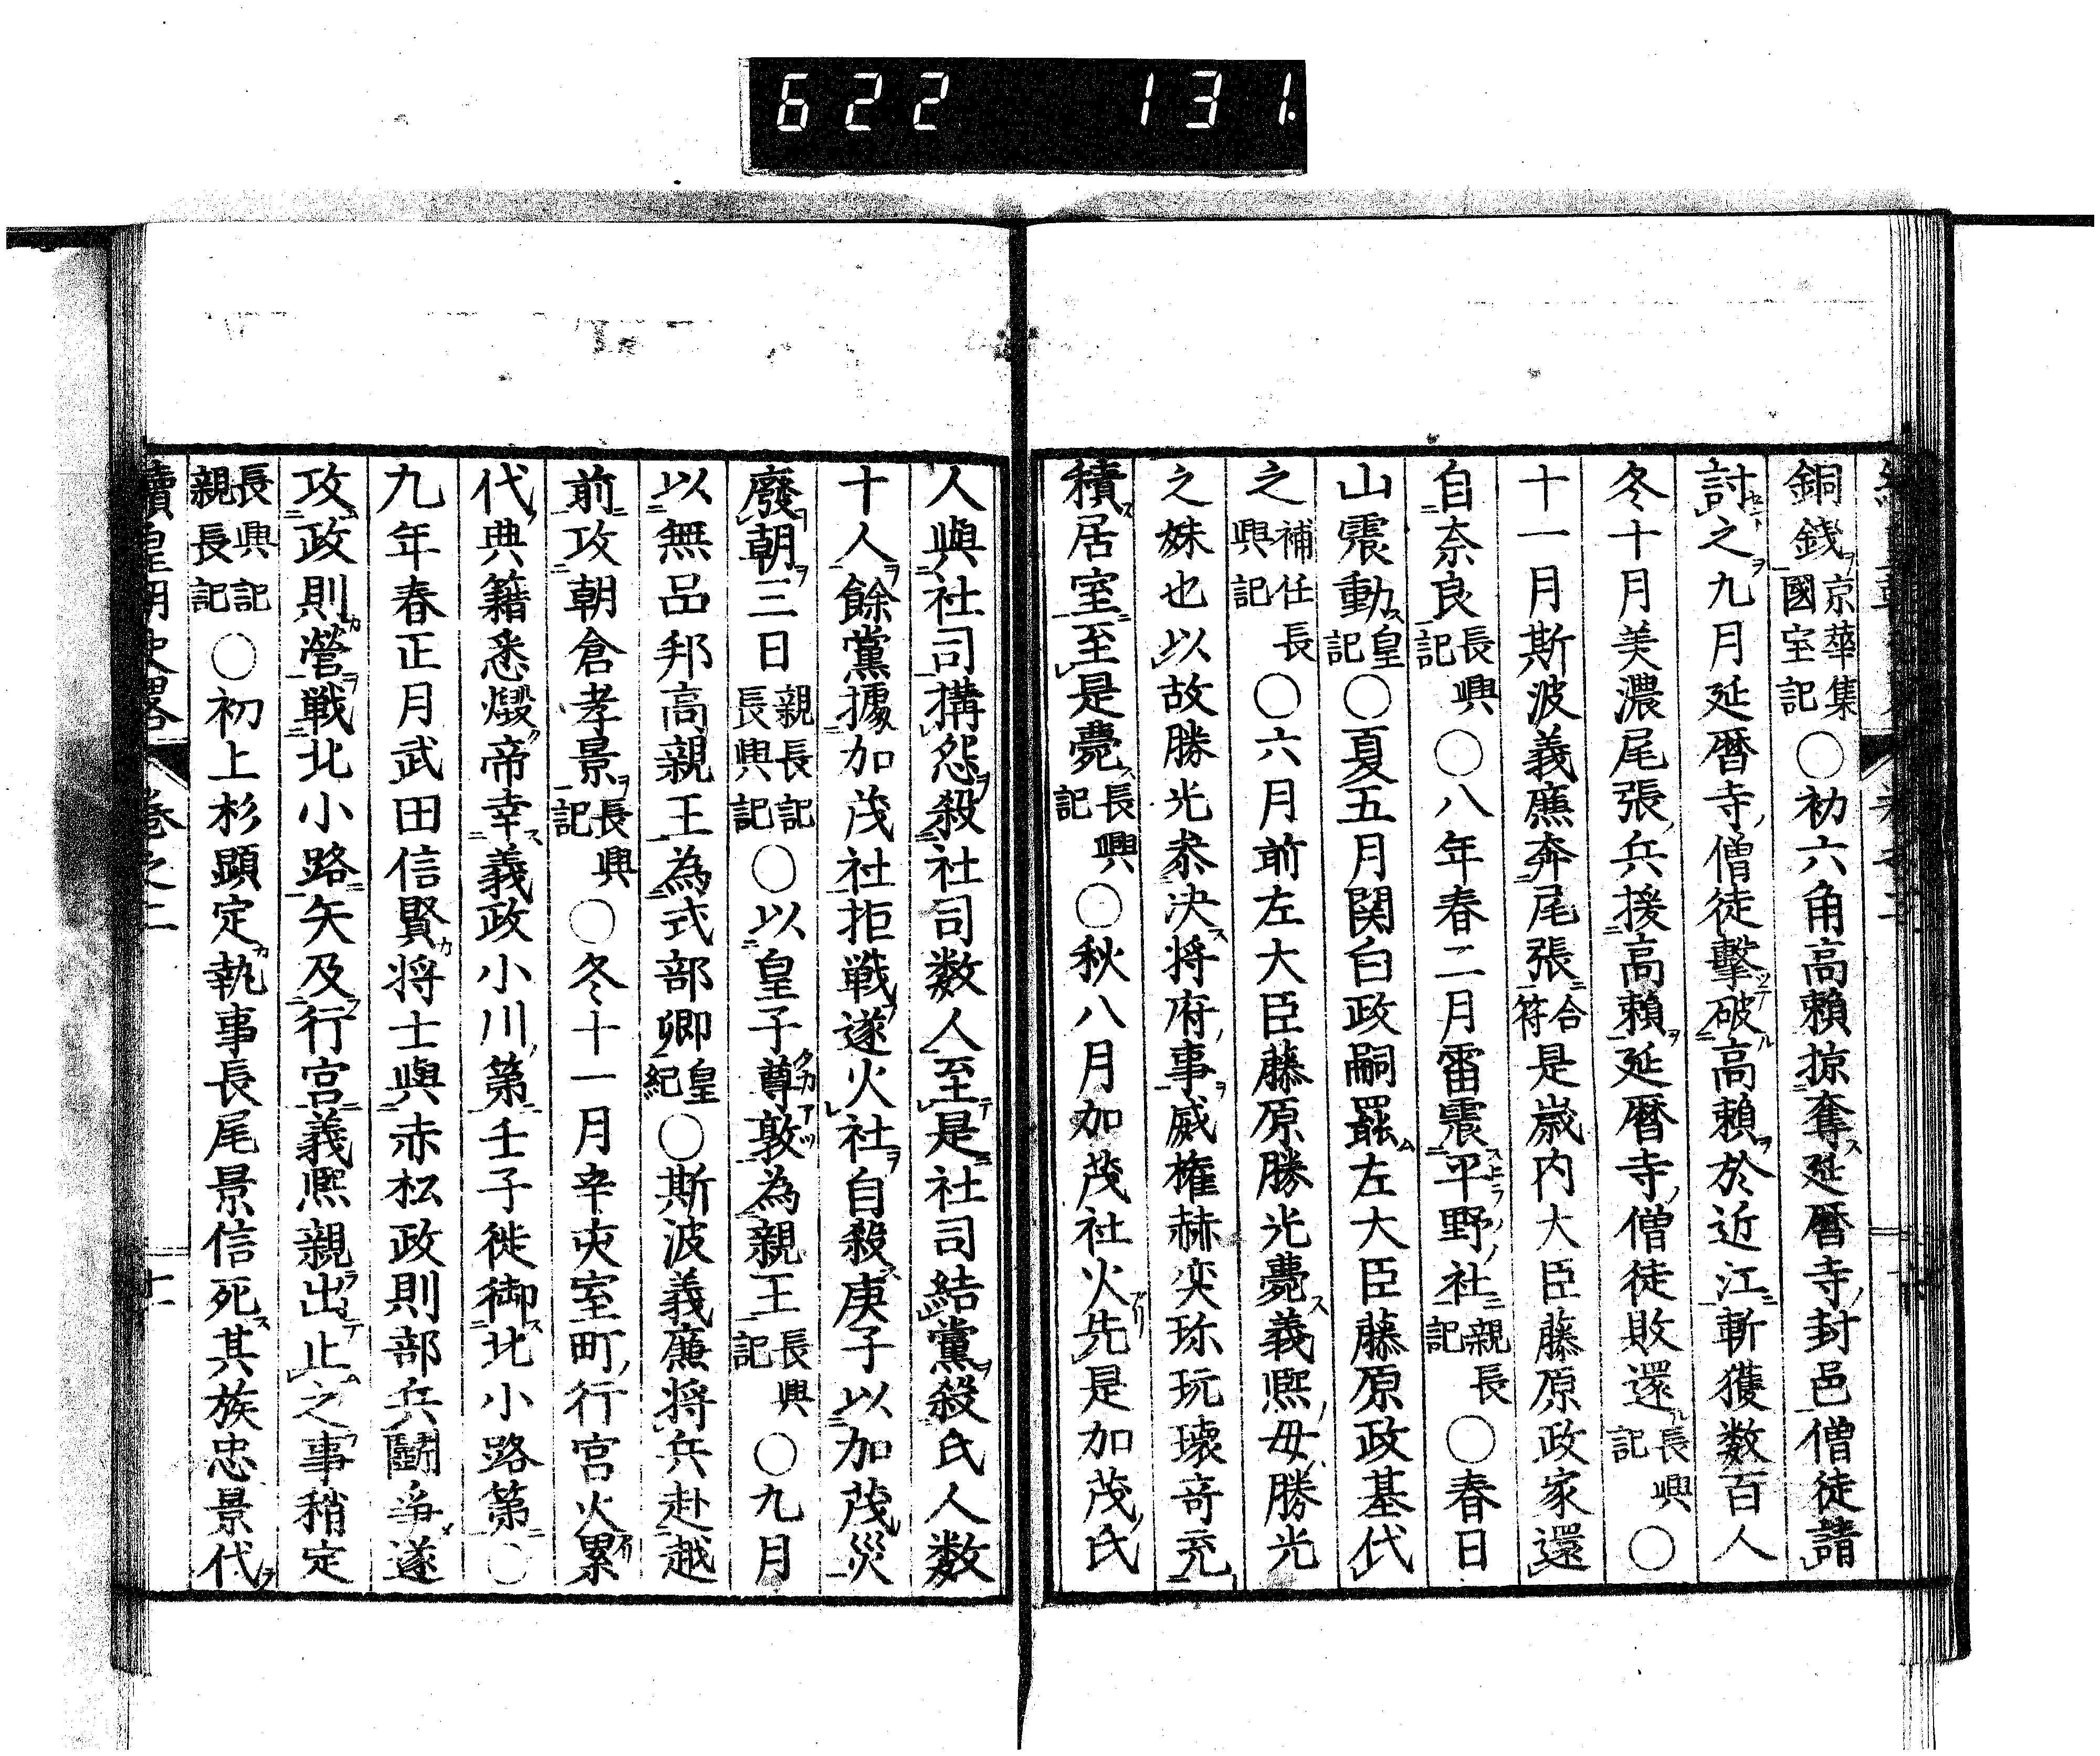 622 131.
銅銭京華集國室記〇初六角高頼掠奪延暦寺封邑僧徒請
討之九月延暦寺僧徒撃破高頼於近江斬獲数百人
冬十月美濃尾張兵援高頼延暦寺僧徒敗還長興記〇
十一月斯波義廉奔尾張合符是歳内大臣藤原政家還
自奈良長興記〇八年春二月雷震平野社親長記〇春日
山震動皇記〇夏五月関白政嗣罷左大臣藤原政基代
之補任長興記〇六月前左大臣藤原勝光薨義熈母勝光
之妹也以故勝光叅决将府事威権赫奕珎玩瓌竒充
積居室至是薨長興記〇秋八月加茂社火先是加茂氏
人與社司搆怨殺社司数人至是社司結黨殺氏人数
十人餘黨據加茂社拒戦遂火社自殺庚子以加茂災
廢朝三日親長記長興記〇以皇子尊敦為親王長興記〇九月
以無品邦高親王為式部卿皇紀〇斯波義廉将兵赴越
前攻朝倉孝景長興記〇冬十一月辛亥室町行宮火累
代典籍悉燬帝幸義政小川第壬子徙御北小路第〇
九年春正月武田信賢将士與赤松政則部兵鬭争遂
攻政則營戦北小路矢及行宮義熈親出止之事稍定
長興記親長記〇初上杉顕定執事長尾景信死其族忠景代
續皇朝史畧 巻之二 十一